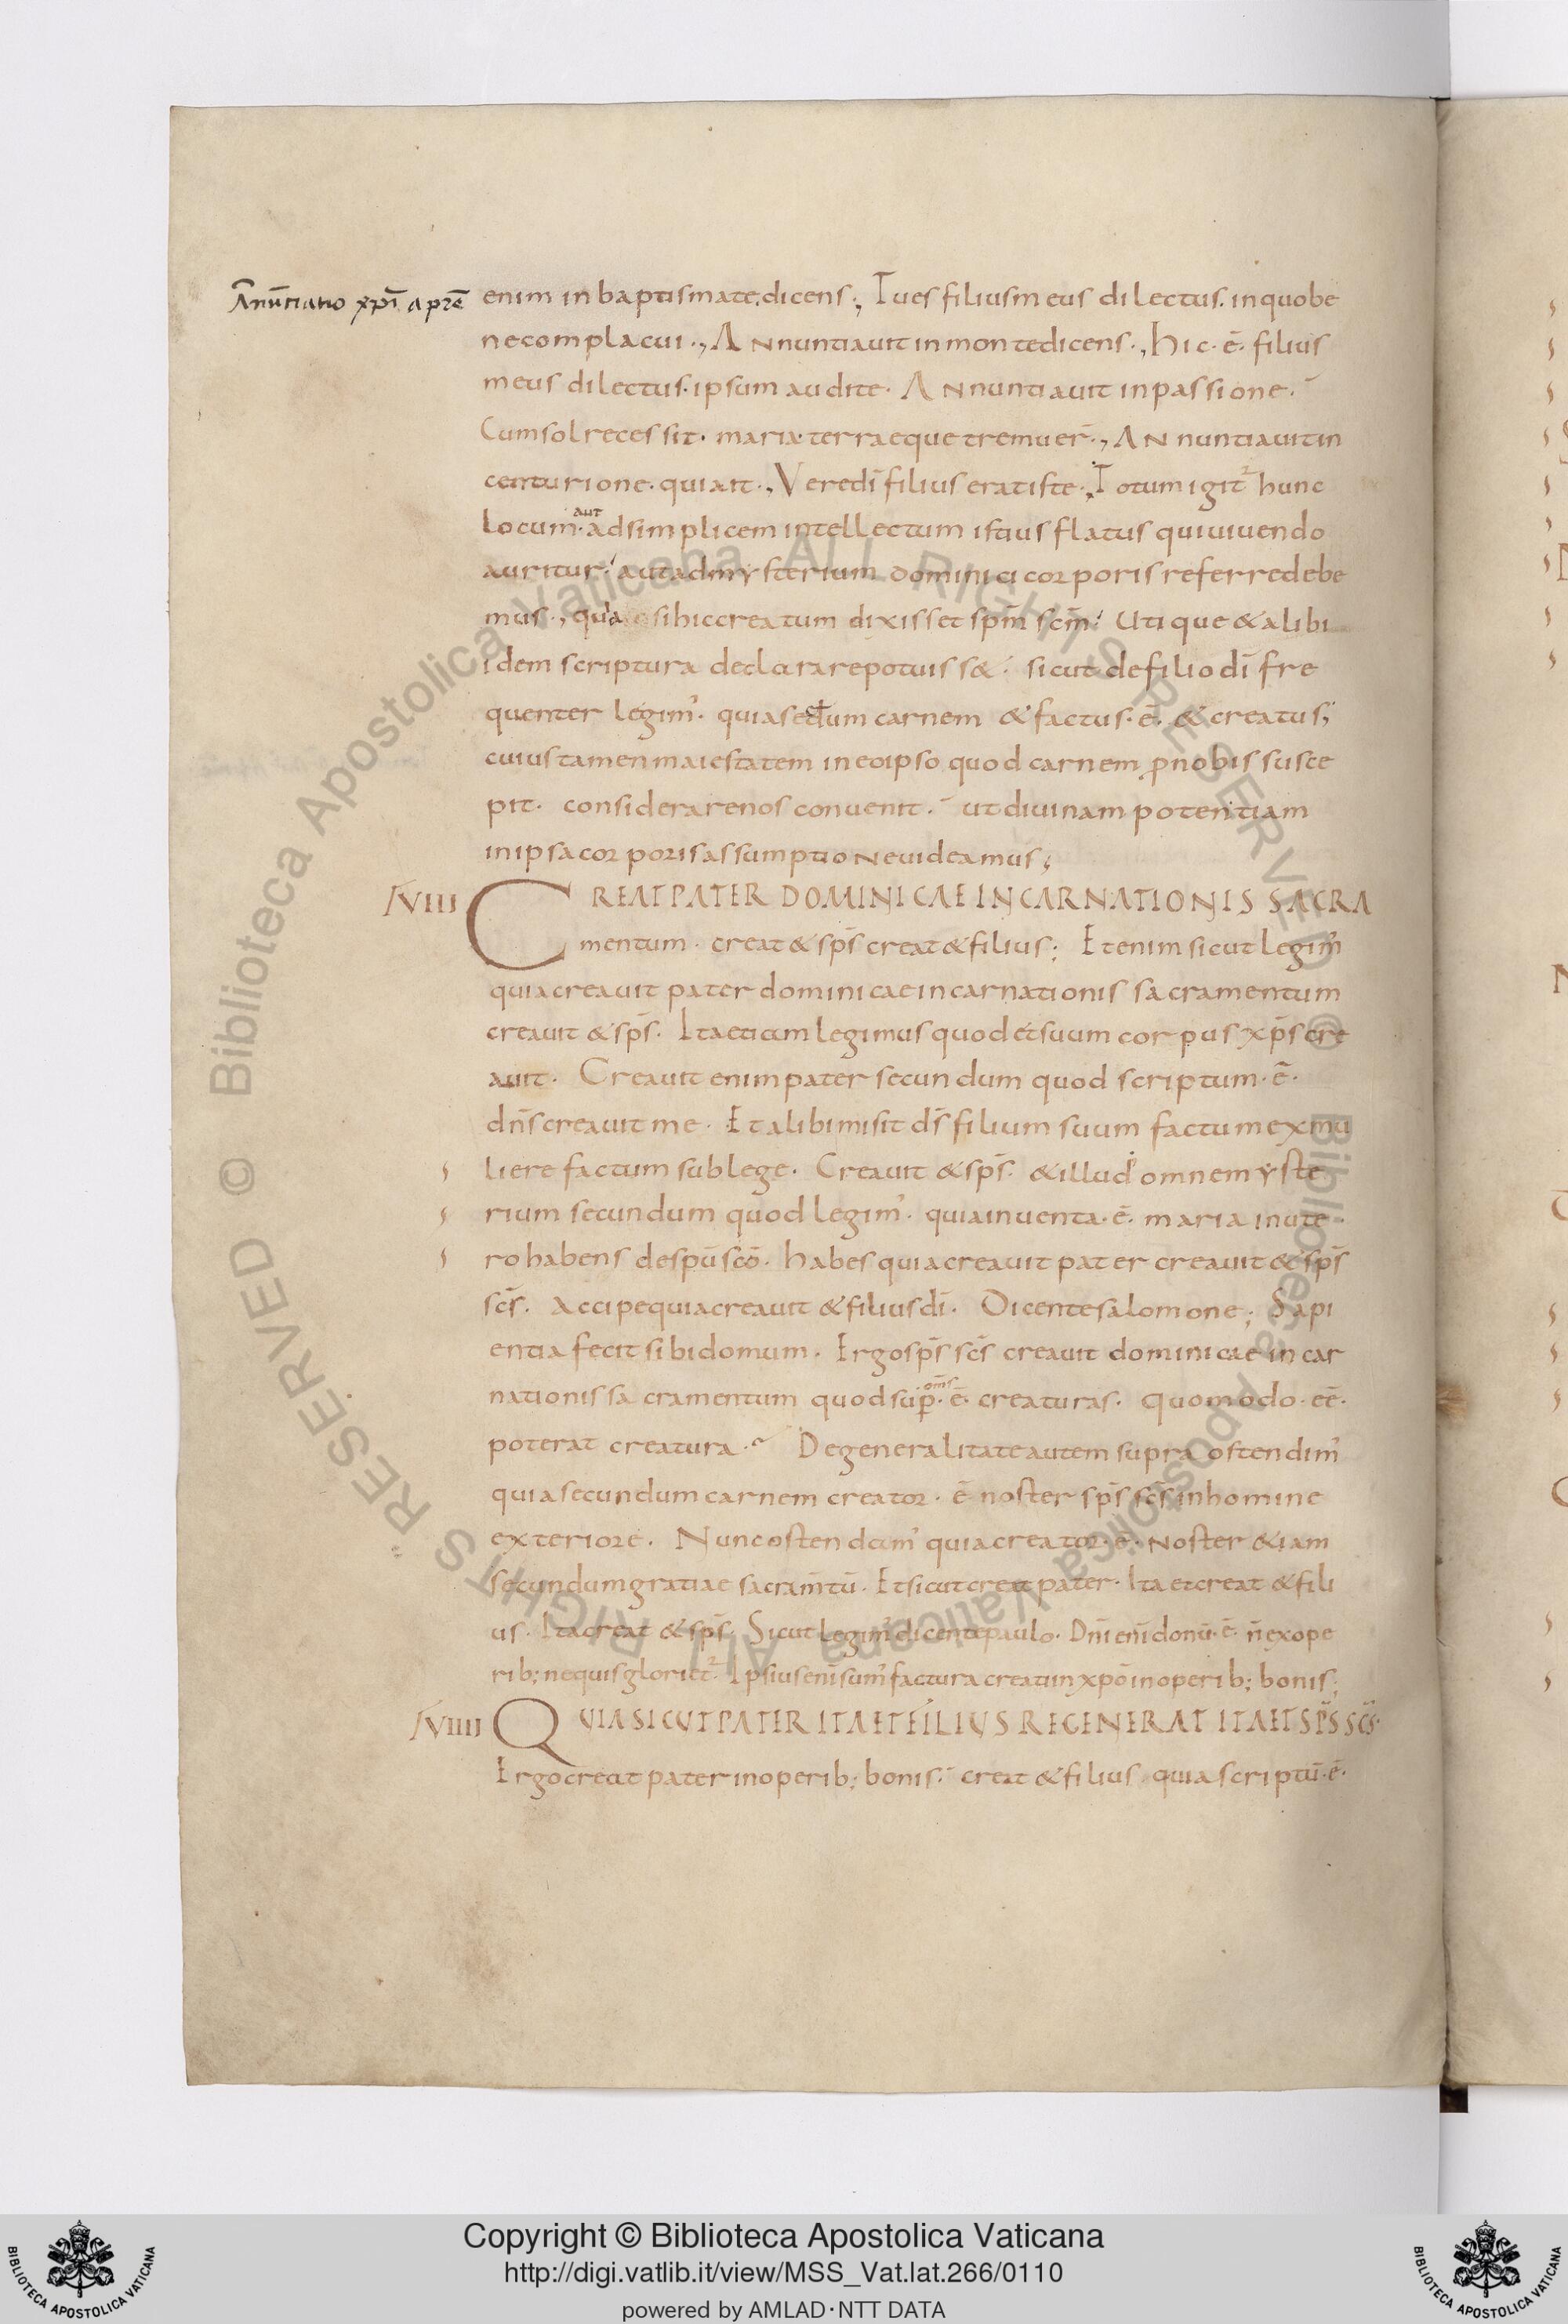 Annūtiatio xp̄i a prē
enim in baptismate. dicens., Tu es filius meus dilectus. in quo be
ne complacui., ANnuntiauit in monte dicens., hic. ē. filius
meus dilectus. ipsum audite. ANnuntiauit in passione.
Cum sol recessit. maria terraeque tremuer̄., ANnuntiauit in
centurione. qui ait., Vere dī filius erat iste., Totum igit hunc
aut
locum. ad simplicem intellectum istius flatus qui uiuendo
auritur. aut ad mysterium dominici corporis referre debe
mus., qua si hic creatum dixisset sp̄m sc̄m. Utique & alibi
idem scriptura declarare potuiss&. sicut de filio dī fre
quenter legim'. quia secdum carnem & factus. ē. & creatus;
cuius tamen maiestatem in eo ipso quod carnem ꝓ nobis susce
pit. considerare nos conuenit. ut diuinam potentiam
in ipsa corporis assumptioNe uideamus;
VIII CREAT PATER DOMINICAE INCARNATIONIS SACRA
mentum. creat & sp̄s creat & filius; Etenim sicut legim'
quia creauit pater dominicae incarnationis sacramentum
creauit & sp̄s. Ita etiam legimus quod et suum corpus xp̄s cre
auit. Creauit enim pater secundum quod scriptum. ē.
dn̄s creauit me. Et alibi misit ds̄ filium suum factum ex mu
liere factum sub lege. Creauit & sp̄s. & illud omne myste
rium secundum quod legim'. quia inuenta. ē. maria in ute
ro habens de spū scō. habes quia creauit pater creauit & sp̄s
sc̄s. Accipe quia creauit & filius dī. Dicente salomone; Sapi
entia fecit sibi domum. Ergo sp̄s sc̄s creauit dominicae incar
oms
nationis sacramentum quod sup̱. ē. creaturas. Quomodo. eē.
poterat creatura. De generalitate autem supra ostendim'
quia secundum carnem creator. ē noster sp̄s sc̄s in homine
exteriore. Nunc ostendam' quia creator. ē. Noster &iam
secundum gratiae sacram̄tū. Et sicut creat pater. Ita et creat & fili
us. Ita creat & sp̄s. Sicut legim' dicente paulo. Dn̄i eni donū. ē. n̄ ex ope
rib; ne quis gloriet. Ipsius eni sum' factura creati in xpō in operib; bonis;
VIIII QUIA SICUT PATER ITA ET FILIUS REGENERAT ITA ET SP̄S SC̄S.
Ergo creat pater in operib; bonis. creat & filius quia scriptū. ē.
Copyright © Biblioteca Apostolica Vaticana
http://digi.vatlib.it/view/MSS_Vat.lat.266/0110
powered by AMLAD·NTT DATA
BIBLIOTECA APOSTOLICA VATICANA
BIBLIOTECA APOSTOLICA VATICANA
© Biblioteca Apostolica Vaticana ALL RIGHTS RESERVED © Biblioteca Apostolica Vaticana ALL RIGHTS RESERVED